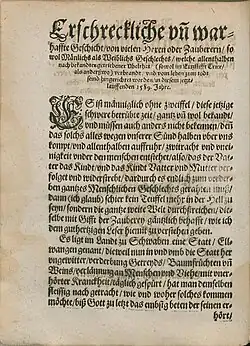 Erschreckliche vñ war-
haffte Geschicht/ von vielen Hexen oder Zauberern/ so
wol Mänlichs als Weiblichs Geschlechts/ welche allenthalben
nach bekandter
als anderswo) verbrandt/ vnd vom leben zum todt
seind hingerichtet worden/ in diesem jetzt
lauffenden 1589. Jahre.
ES ist männiglich ohne zweiffel/ diese jetzige
schwere betrübte zeit/ gantz vñ wol bekandt/
vnd müssen auch anders nicht bekennen/ deñ
das solchs alles wegen vnserer Sünd halben vber vns
kompt/ vnd allenthalben auffruhr/ zwitracht vnd vnei-
nigkeit vnder den menschen entstehet/ also/ das der Vat-
ter das Kindt/ vnd das Kind Vatter vnd Mutter ver-
folget vnd widerstreb/ dardurch es endlich zum verder-
ben gantzes Menschlichen Geschlechts geraten muß/
dann (ich glaub) schier kein Teuffel mehr in der Hell zu
seyn/ sonder die gantze weite Welt durchstreiffen/ die-
selbe mit Gifft der Zauberey gäntzlich behafft/ wie ich
den guthertzigen Leser hiemit zuverstehen geben.
Es ligt im Landt zu Schwaben eine Statt/ Ell-
wangen genant/ dieweil nun in vnd vmb die Statt vber
vngewitter/ verderbung Getreyds/ Baumfrüchten vñ
Weins/ verlämung an Menschen vnd Viehe/ mit vner-
hörter Kranckheit/ täglich gespürt/ hat man demselben
fleissig nach getracht/ wie vnd woher solches kommen
möchte/ biß Gott zu letzt das embsig beten der seinen er-
hört/